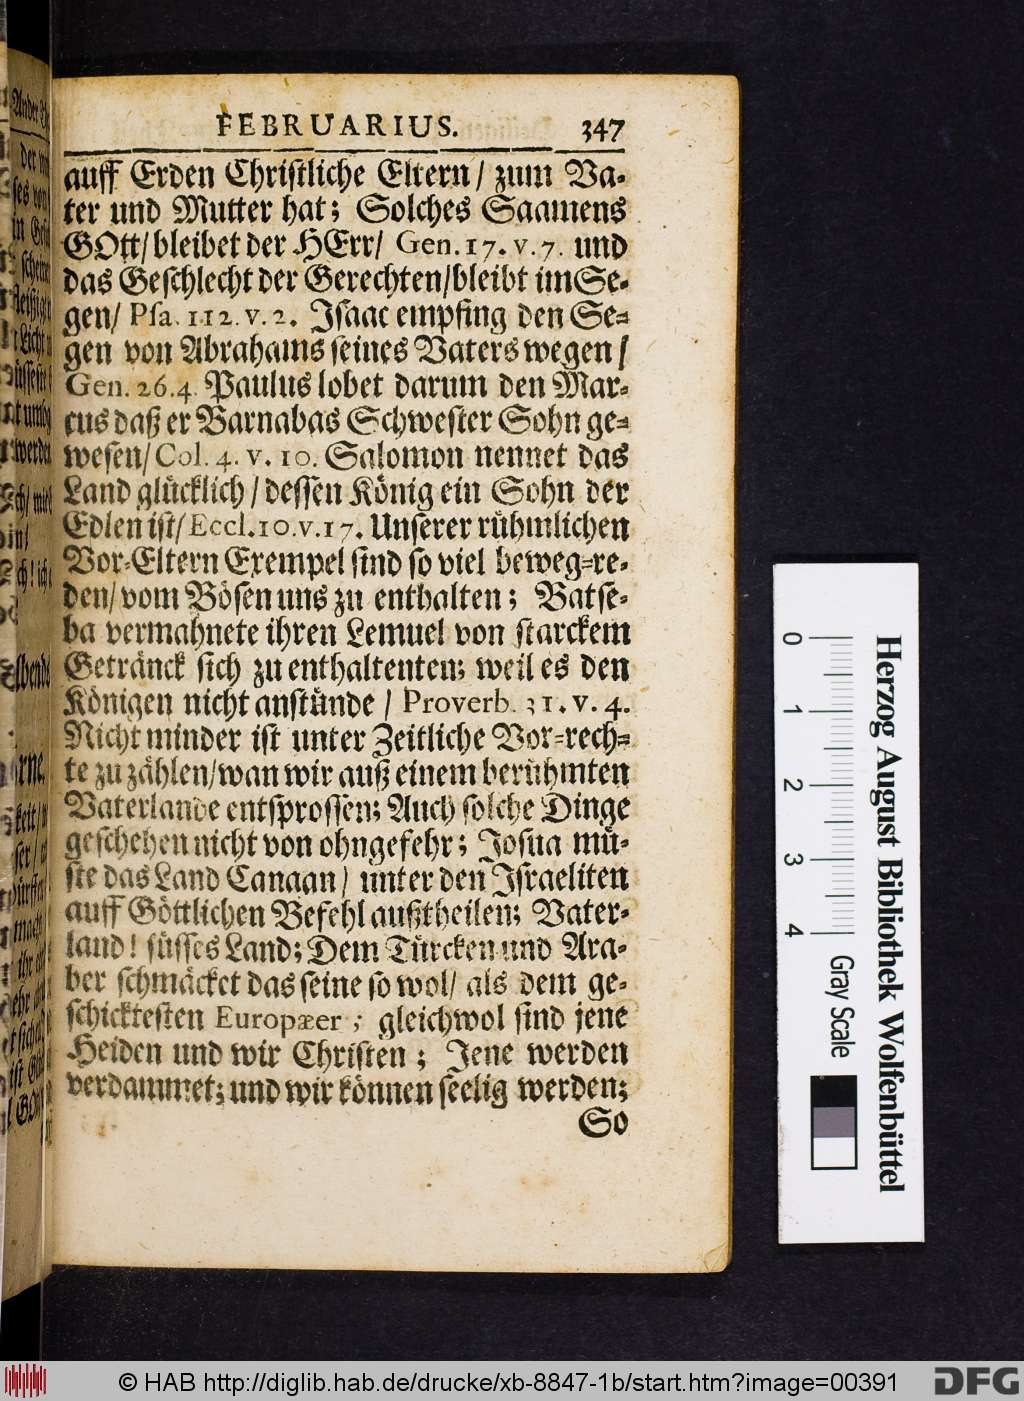 FEBRUARIUS. 347
auff Erden Christliche Eltern / zum Va-
ter und Mutter hat; Solches Saamens
GOtt / bleibet der HErr / Gen. 17. v. 7. und
das Geschlecht der Gerechten / bleibt im Se-
gen / Psa. 112. v. 2. Isaac empfing den Se-
gen von Abrahams seines Vaters wegen /
Gen. 26. 4. Paulus lobet darum den Mar-
cus daß er Barnabas Schwester Sohn ge-
wesen / Col. 4. v. 10. Salomon nennet das
Land glücklich / dessen König ein Sohn der
Edlen ist / Eccl. 10. v. 17. Unserer rühmlichen
Vor-Eltern Exempel sind so viel beweg-re-
den / vom Bösen uns zu enthalten; Batse-
ba vermahnete ihren Lemuel von starckem
Getränck sich zu enthaltenten; weil es den
Königen nicht anstünde / Proverb. 31. v. 4.
Nicht minder ist unter Zeitliche Vor-rech-
te zu zählen / wan wir auß einem berühmten
Vaterlande entsprossen; Auch solche Dinge
geschehen nicht von ohngefehr; Josua mü-
ste das Land Canaan / unter den Israeliten
auff Göttlichen Befehl außtheilen; Vater-
land! süsses Land; Dem Türcken und Ara-
ber schmäcket das seine so wol / als dem ge-
schicktesten Europæer; gleichwol sind jene
Heiden und wir Christen; Jene werden
verdammet; und wir können seelig werden;
So
Herzog August Bibliothek Wolfenbüttel
0 1 2 3 4 Gray Scale
© HAB http://diglib.hab.de/drucke/xb-8847-1b/start.htm?image=00391
DFG